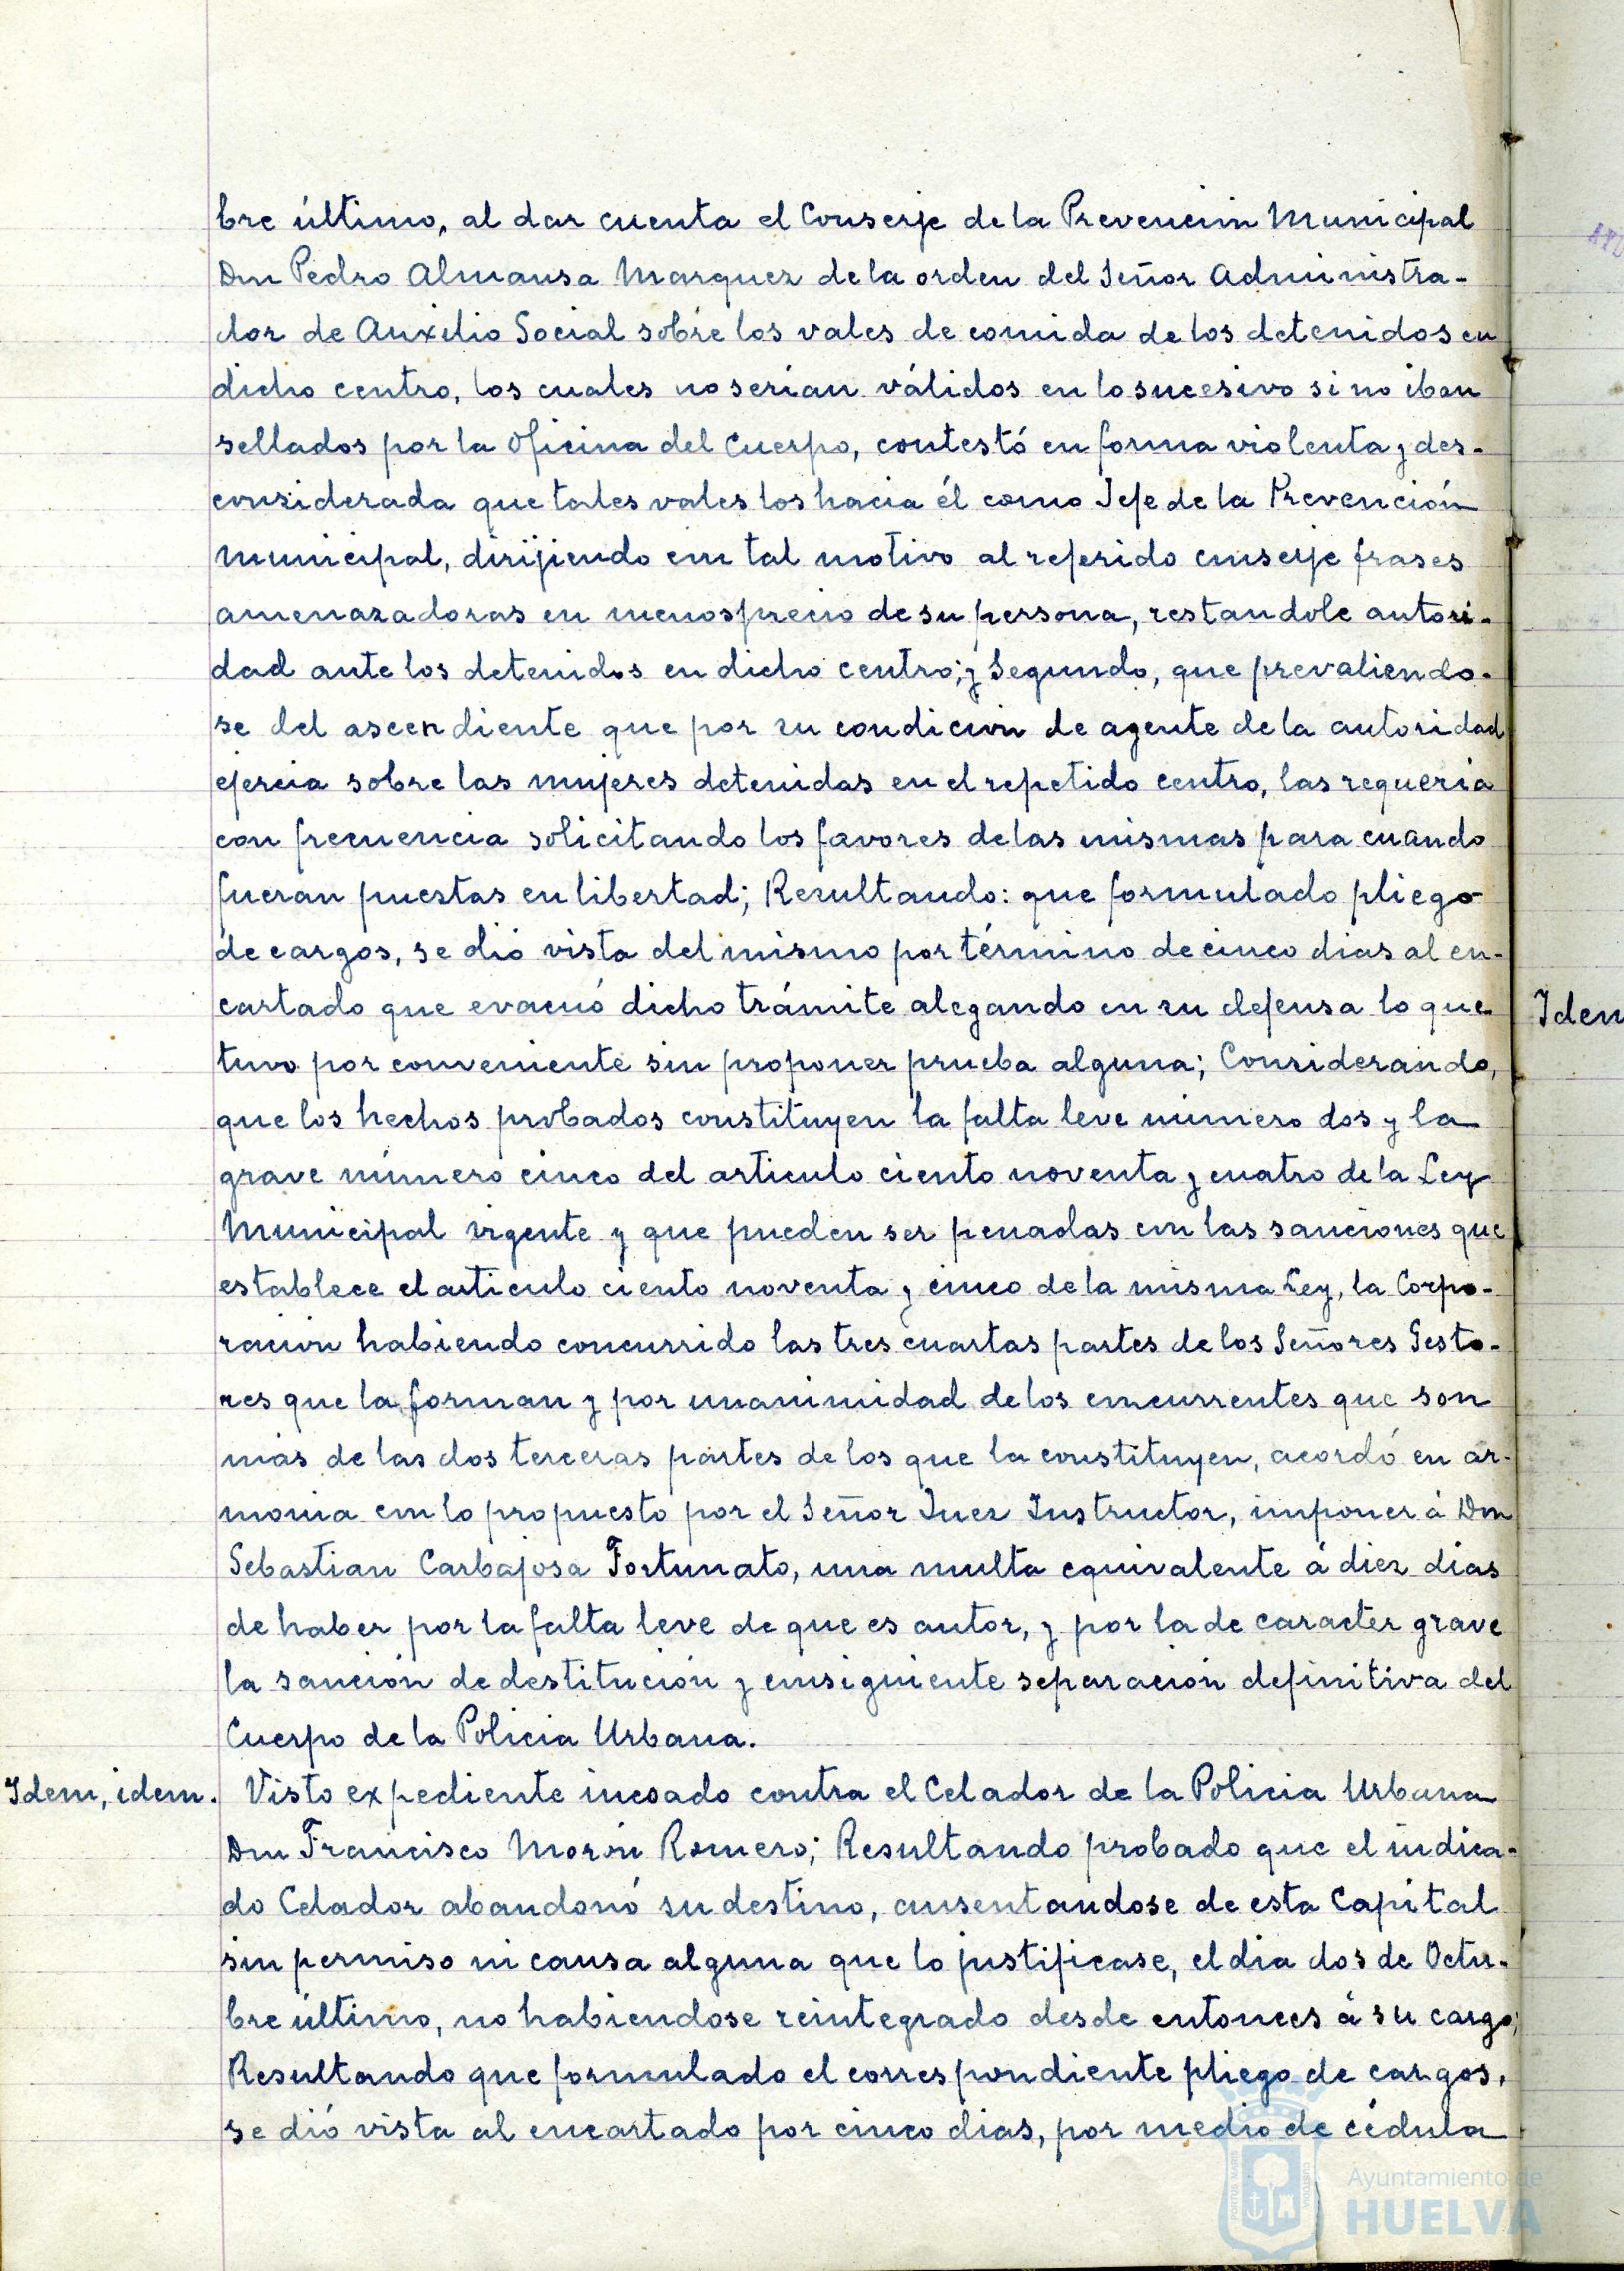 bre último, al dar cuenta el Conserje de la Prevencion Municipal
Don Pedro Almansa Marquez de la orden del Señor Administra-
dor de Auxilio Social sobre los vales de comida de los detenidos en
dicho centro, los cuales no serían válidos en lo sucesivo si no iban
sellados por la Oficina del Cuerpo, contestó en forma violenta y des-
considerada que tales vales los hacia él como Jefe de la Prevención
Municipal, dirijiendo con tal motivo al referido conserje frases
amenazadoras en menosprecio de su persona, restandole autori-
dad ante los detenidos en dicho centro; y Segundo, que prevaliendo-
se del ascendiente que por su condicion de agente de la autoridad
ejercia sobre las mujeres detenidas en el repetido centro, las requeria
con frecuencia solicitando los favores de las mismas para cuando
fueran puestas en libertad; Resultando: que formulado pliego
de cargos, se dió vista del mismo por término de cinco dias al en-
cartado que evacuó dicho trámite alegando en su defensa lo que
tuvo por conveniente sin proponer prueba alguna; Considerando,
que los hechos probados constituyen la falta leve número dos y la
grave número cinco del articulo ciento noventa y cuatro de la Ley
Municipal vigente y que pueden ser penadas con las sanciones que
establece el articulo ciento noventa y cinco de la misma Ley, la Corpo-
racion habiendo concurrido las tres cuartas partes de los Señores Gesto-
res que la forman y por unanimidad de los concurrentes que son
más de las dos terceras partes de los que la constituyen, acordó en ar-
monia con lo propuesto por el Señor Juez Instructor, imponer á Don
Sebastian Carbajosa Fortunato, una multa equivalente á diez dias
de haber por la falta leve de que es autor, y por la de caracter grave
la sanción de destitución y consiguiente separación definitiva del
Cuerpo de la Policia Urbana.
Idem, idem. Visto expediente incoado contra el Celador de la Policia Urbana
Don Francisco Morón Romero; Resultando probado que el indica-
do Celador abandonó su destino, ausentandose de esta Capital
sin permiso ni causa alguna que lo justificase, el dia dos de Octu-
bre último, no habiendose reintegrado desde entonces á su cargo;
Resultando que formulado el correspondiente pliego de cargos,
se dió vista al encartado por cinco dias, por medio de cédula
Ayuntamiento de
HUELVA